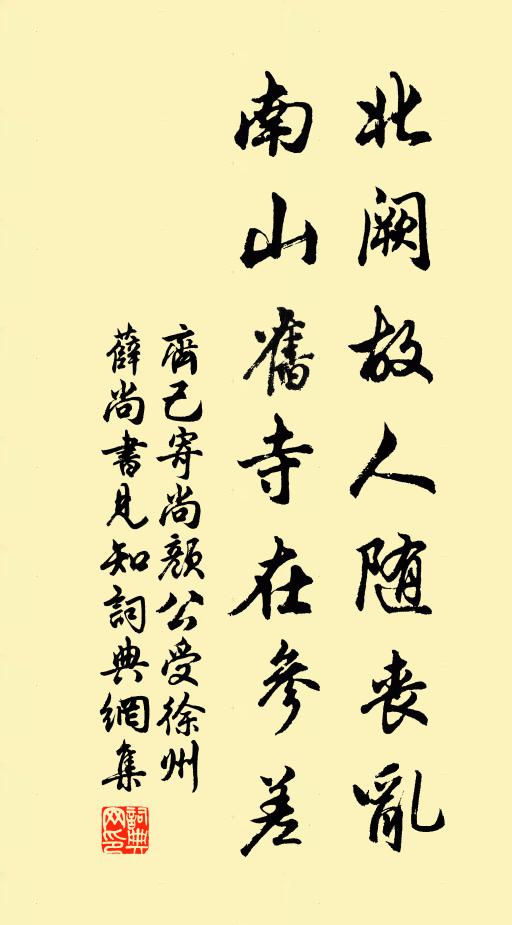 北阙故人随丧亂
南山舊寺在參差
齊己寄尚顏公受徐州
薛尚書見知詞典網集
詞典网印